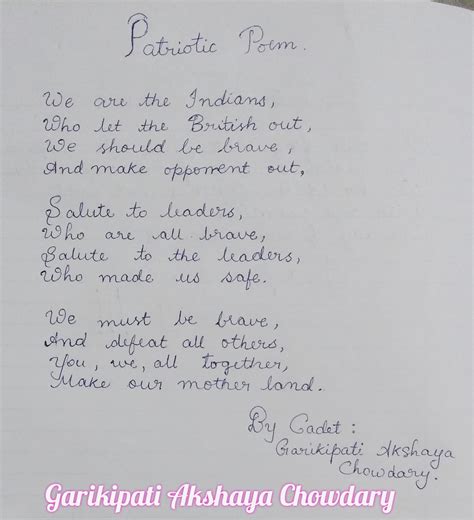 Patriotic Poem.
We are the Indians,
Who let the British out,
We should be brave,
And make opponent out,
Salute to leaders,
Who are all brave,
Salute to the leaders,
Who made us safe.
We must be brave,
And defeat all others,
You, we, all together,
Make our mother land.
By Cadet :
Garikipati Akshaya
Chowdary.
Garikipati Akshaya Chowdary